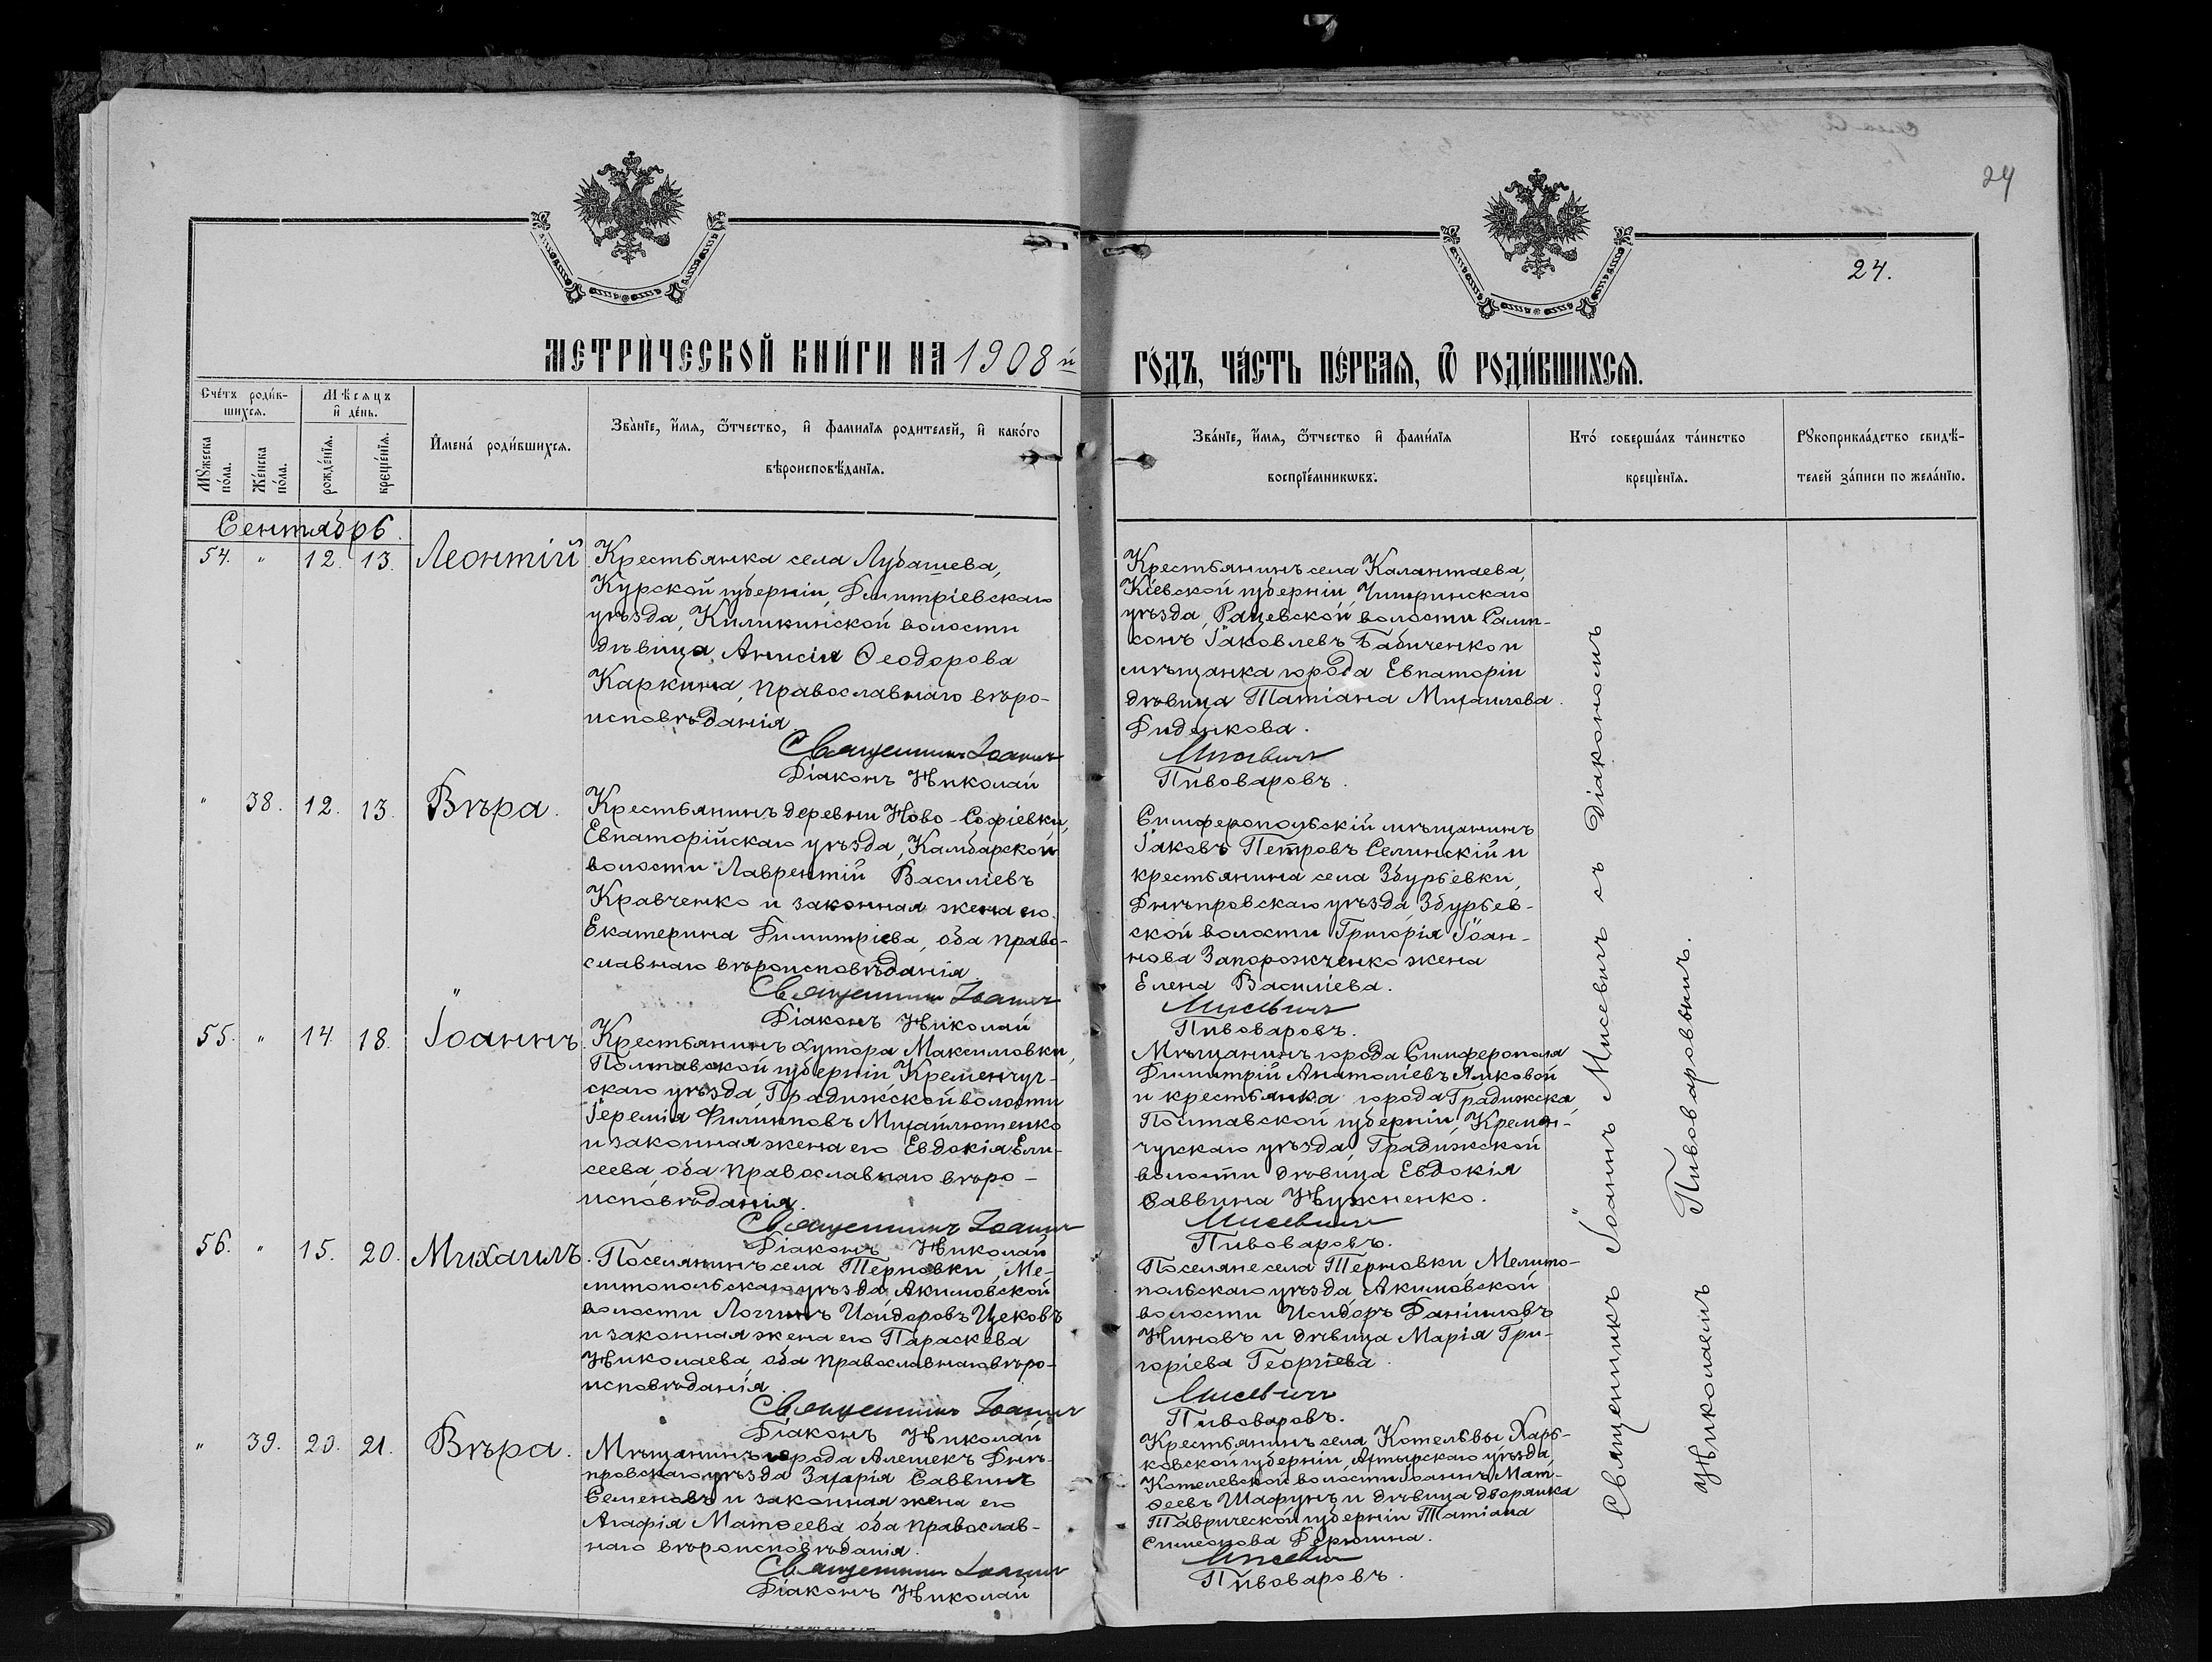 24
24.
МЕТРИ́ЧЕСКОЙ КНИ́ГИ НА 1908 й
ГО́ДЪ, ЧА́СТЬ ПЕ́РВАѦ, Ѿ РОДИ́ВШИХСѦ.
Сче́тъ роди́в-
шихсѧ.
Мꙋжеска по́ла.
Же́нска по́ла.
Мѣсѧцъ
и҆ де́нь.
рожде́нїѧ.
креще́нїѧ.
И҆мена́ роди́вшихсѧ.
Зва́нїе, и҆́мѧ, ѻ҆́тчество, и҆ фамилїѧ родителей, и҆ како́го
вѣроисповѣ́данїѧ.
Зва́нїе, и҆́мѧ, ѻ҆́тчество и҆ фами́лїѧ
воспрїе́мникѡвъ.
Кто́ соверша́лъ та́инство
креще́нїѧ.
Рꙋкоприкла́дство свидѣ́-
телей за́писи по жела́нїю.
Сентябрь.
54. " 12. 13. Леонтій
Крестьянка села Лубашева,
Курской губерніи, Димитріевскаго
уѣзда, Киликинской волости
дѣвица Анисія Ѳеодорова
Каркина, православнаго вѣро-
исповѣданія
Священникъ Іоаннъ
Діаконъ Николай
Крестьянинъ села Калантаева,
Кіевской губерніи, Чигиринскаго
уѣзда, Рацевской волости Самп-
сонъ Іаковлевъ Бабиченко и
мѣщанка города Евпаторіи
дѣвица Татіана Михаилова
Диденкова.
Мисевичъ
Пивоваровъ.
" 38. 12. 13. Вѣра.
Крестьянинъ деревни Ново-Софіевки,
Евпаторійскаго уѣзда, Камбарской
волости Лаврентій Василіевъ
Кравченко и законная жена его
Екатерина Димитріева, оба право-
славнаго вѣроисповѣданія.
Священникъ Іоаннъ
Діаконъ Николай
Симферопольскій мѣщанинъ
Іаковъ Петровъ Селинскій и
крестьянина села Збурьевки,
Днѣпровскаго уѣзда, Збурьев-
ской волости Григорія Іоан-
нова Запорожченко жена
Елена Василіева.
Мисевичъ
Пивоваровъ.
55. " 14. 18. Іоаннъ.
Крестьянинъ хутора Максимовки,
Полтавской губерніи Кременчуг-
скаго уѣзда, Градижской волости
Іеремія Филипповъ Михайлютенко
и законная жена его Евдокія Ели-
сеева, оба православнаго вѣро-
исповѣданія.
Священникъ Іоаннъ
Діаконъ Николай
Мѣщанинъ города Симферополя
Димитрій Анатоліевъ Ялковой
и крестьянка города Градижска,
Полтавской губерніи, Кремен-
чугскаго уѣзда, Градижской
волости дѣвица Евдокія
Саввина Нужненко.
Мисевичъ
Пивоваровъ.
56. " 15. 20. Михаилъ.
Поселянинъ села Терновки, Ме-
литопольскаго уѣзда, Акимовской
волости Логгинъ Исидоровъ Цековъ
и законная жена его Параскева
Николаева, оба православнаго вѣро-
исповѣданія.
Священникъ Іоаннъ
Діаконъ Николай
Поселяне села Терновки, Мелито-
польскаго уѣзда, Акимовской
волости Исидоръ Даніиловъ
Ниновъ и дѣвица Марія Гри-
горіева Георгіева.
Мисевичъ
Пивоваровъ.
" 39. 20. 21. Вѣра.
Мѣщанинъ города Алешекъ Днѣ-
провскаго уѣзда Захарія Саввинъ
Семеновъ и законная жена его
Агафія Матѳеева, оба православ-
наго вѣроисповѣданія.
Священникъ Іоаннъ
Діаконъ Николай
Крестьянинъ села Котельвы Харь-
ковской губерніи, Ахтырскаго уѣзда,
Котелевской волости Іоаннъ Мат-
ѳеевъ Шафунъ и дѣвица дворянка
Таврической губерніи Татіана
Симеонова Дерюгина.
Мисевичъ
Пивоваровъ.
Священникъ Іоаннъ Мисевичъ съ Діакономъ
Николаемъ Пивоваровымъ.